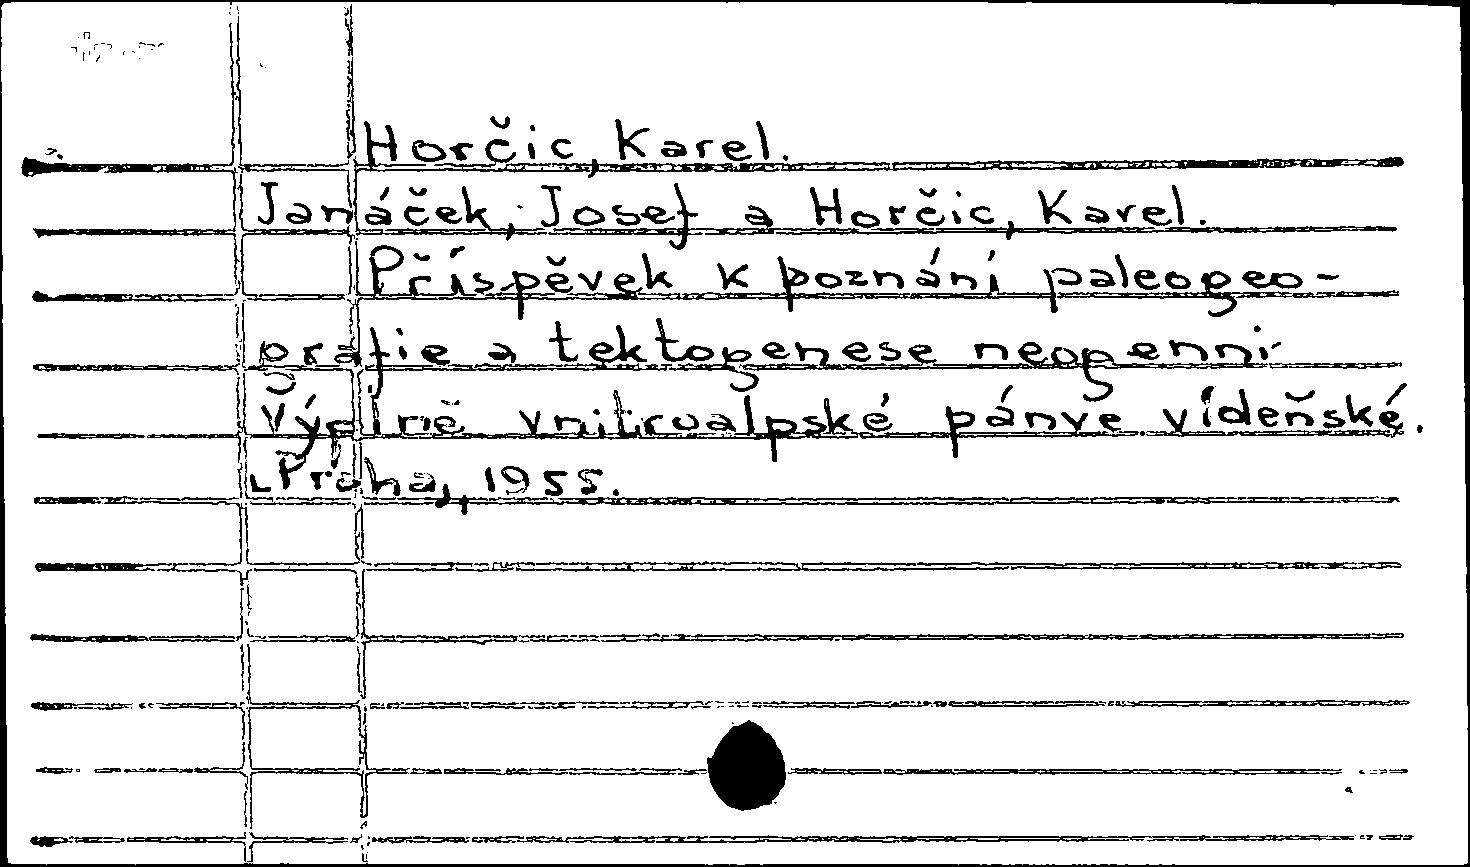 Horčic, Karel.
Janáček, Josef a Horčic, Karel.
Příspěvek k poznání paleogeo-
grafie a tektogenese neogenní
výplně vnitroalpské pánve vídeňské.
Praha, 1955.